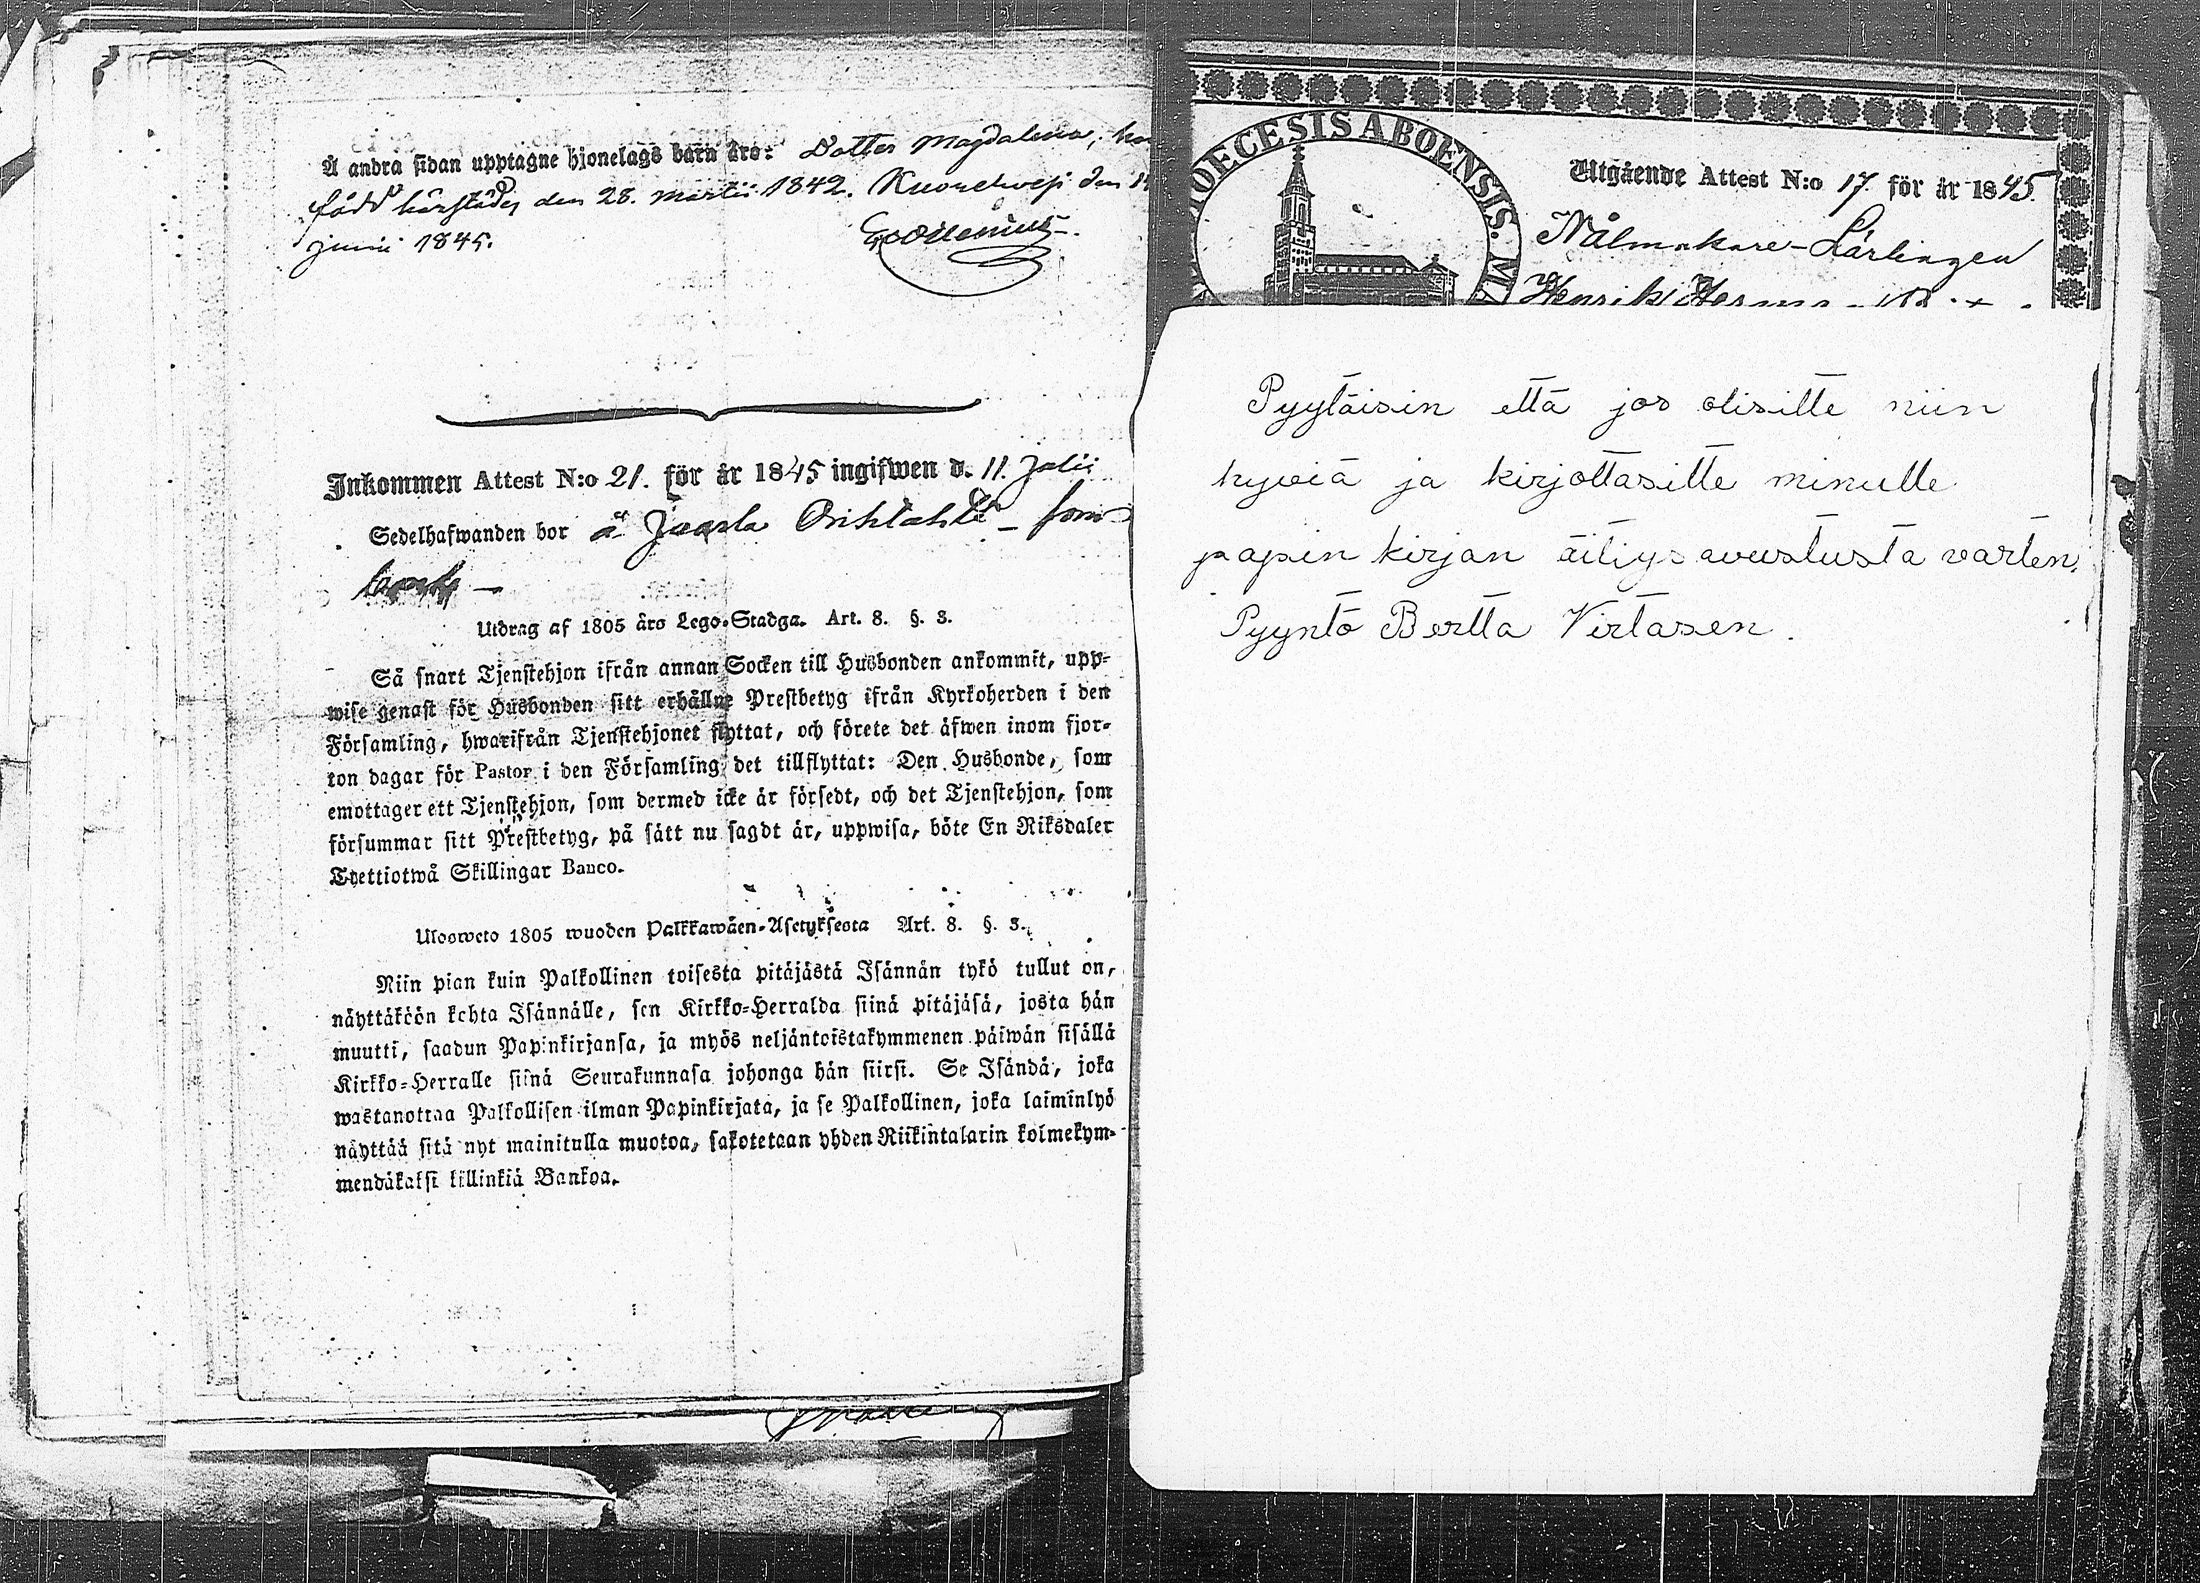 Å andra sidan upptagne hjonelags barn äro: Dotter Magdalena,
född härstädes den 28. martii 1842. Kuorehwesi den
junii 1845.
Inkommen Attest N:o 21. för år 1845 ingifwen d. 11. Julii
Sedelhafwanden bor å
Utdrag af 1805 års Lego-Stadga. Art. 8. §. 3.
Så snart Tjenstehjon ifrån annan Socken till Husbonden ankommit, upp-
wise genast för Husbonden sitt erhållne Prestbetyg ifrån Kyrkoherden i den
Församling, hwarifrån Tjenstehjonet flyttat, och förete det äfwen inom fjor-
ton dagar för Pastor i den Församling det tillflyttat: Den Husbonde, som
emottager ett Tjenstehjon, som dermed icke är försedt, och det Tjenstehjon, som
försummar sitt Prestbetyg, på sätt nu sagdt är, uppwisa, böte En Riksdaler
Trettiotwå Skillingar Banco.
Ulosweto 1805 wuoden Palkkawäen-Asetyksesta Art. 8. §. 3.
Niin pian kuin Palkollinen toisesta pitäjästä Isännän tykö tullut on,
näyttäköön kohta Isännälle, sen Kirkko-Herralda siinä pitäjäsä, josta hän
muutti, saadun Papinkirjansa, ja myös neljäntoistakymmenen päiwän sisällä
Kirkko-Herralle siinä Seurakunnasa johonga hän siirsi. Se Isändä, joka
wastanottaa Palkollisen ilman Papinkirjata, ja se Palkollinen, joka laiminlyö
näyttää sitä nyt mainitulla muotoa, sakotetaan yhden Riikintalarin kolmekym-
mendäkaksi killinkiä Bankoa.
DIOECESIS ABOENSIS.
Utgående Attest N:o 17 för år 1845.
Nålmakare-Lärlingen
Henrik
Pyytäisin että jos olisitte niin
hyviä ja kirjottasitte minulle
papin kirjan äitiys avustusta varten.
Pyyntö Bertta Virtasen.